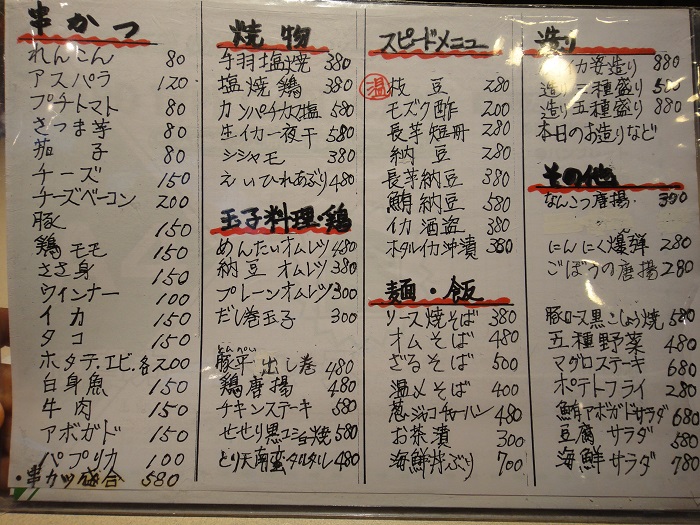 串かつ
れんこん 80
アスパラ 120
プチトマト 80
さつま芋 80
茄子 80
チーズ 150
チーズベーコン 200
豚 150
鶏モモ 150
ささ身 150
ウィンナー 100
イカ 150
タコ 150
ホタテ、エビ、各200
白身魚 150
牛肉 150
アボガド 150
パプリカ 100
・串カツ盛合 580
焼物
手羽塩焼 380
塩焼鶏 380
カンパチカマ塩 580
生イカ一夜干 580
シシャモ 380
えいひれあぶり 480
玉子料理・鶏
めんたいオムレツ 480
納豆オムレツ 380
プレーンオムレツ 300
だし巻玉子 300
とんぺい
豚平出し巻 480
鶏唐揚 480
チキンステーキ 580
せせり黒コショウ焼 580
とり天南蛮タルタル 480
スピードメニュー
温 枝豆 280
モズク酢 200
長芋短冊 280
納豆 280
長芋納豆 380
鮪納豆 580
イカ酒盗 380
ホタルイカ沖漬 380
麺・飯
ソース焼そば 380
オムそば 480
ざるそば 500
温メそば 400
葱ジャコチャーハン 480
お茶漬 300
海鮮丼ぶり 700
造り
イカ姿造り 880
造り三種盛り 500
造り五種盛り 880
本日のお造りなど
その他
なんこつ唐揚 300
にんにく爆弾 280
ごぼうの唐揚 280
豚ロース黒こしょう焼 580
五種野菜 480
マグロステーキ 680
ポテトフライ 280
鮪アボガドサラダ 680
豆腐サラダ 580
海鮮サラダ 780